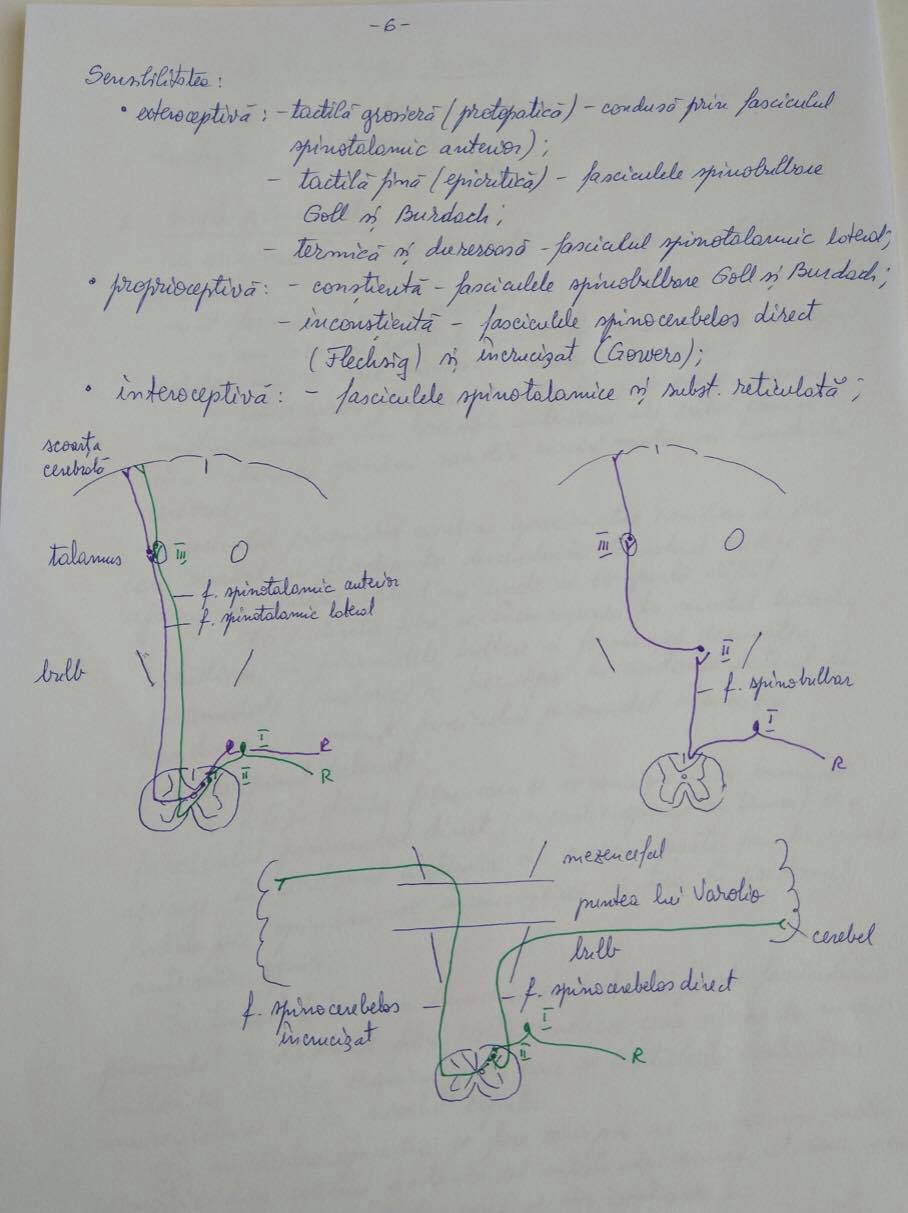 -6-
Sensibilitatea:
• exteroceptivă: - tactilă grosieră (protopatică) - condusă prin fasciculul
spinotalamic anterior);
- tactilă fină (epicritică) - fasciculele spinobulbare
Goll și Burdach;
- termică și dureroasă - fasciculul spinotalamic lateral;
• proprioceptivă: - conștientă - fasciculele spinobulbare Goll și Burdach;
- inconștientă - fasciculele spinocerebelos direct
(Flechsig) și încrucizat (Gowers);
• interoceptivă: - fasciculele spinotalamice și subst. reticulată;
scoarța
cerebrală
talamus
III
f. spinotalamic anterior
f. spinotalamic lateral
bulb
I
R
II
R
III
II
f. spinobulbar
I
R
mezencefal
puntea lui Varolio
bulb
cerebel
f. spinocerebelos
încrucizat
f. spinocerebelos direct
I
II
R